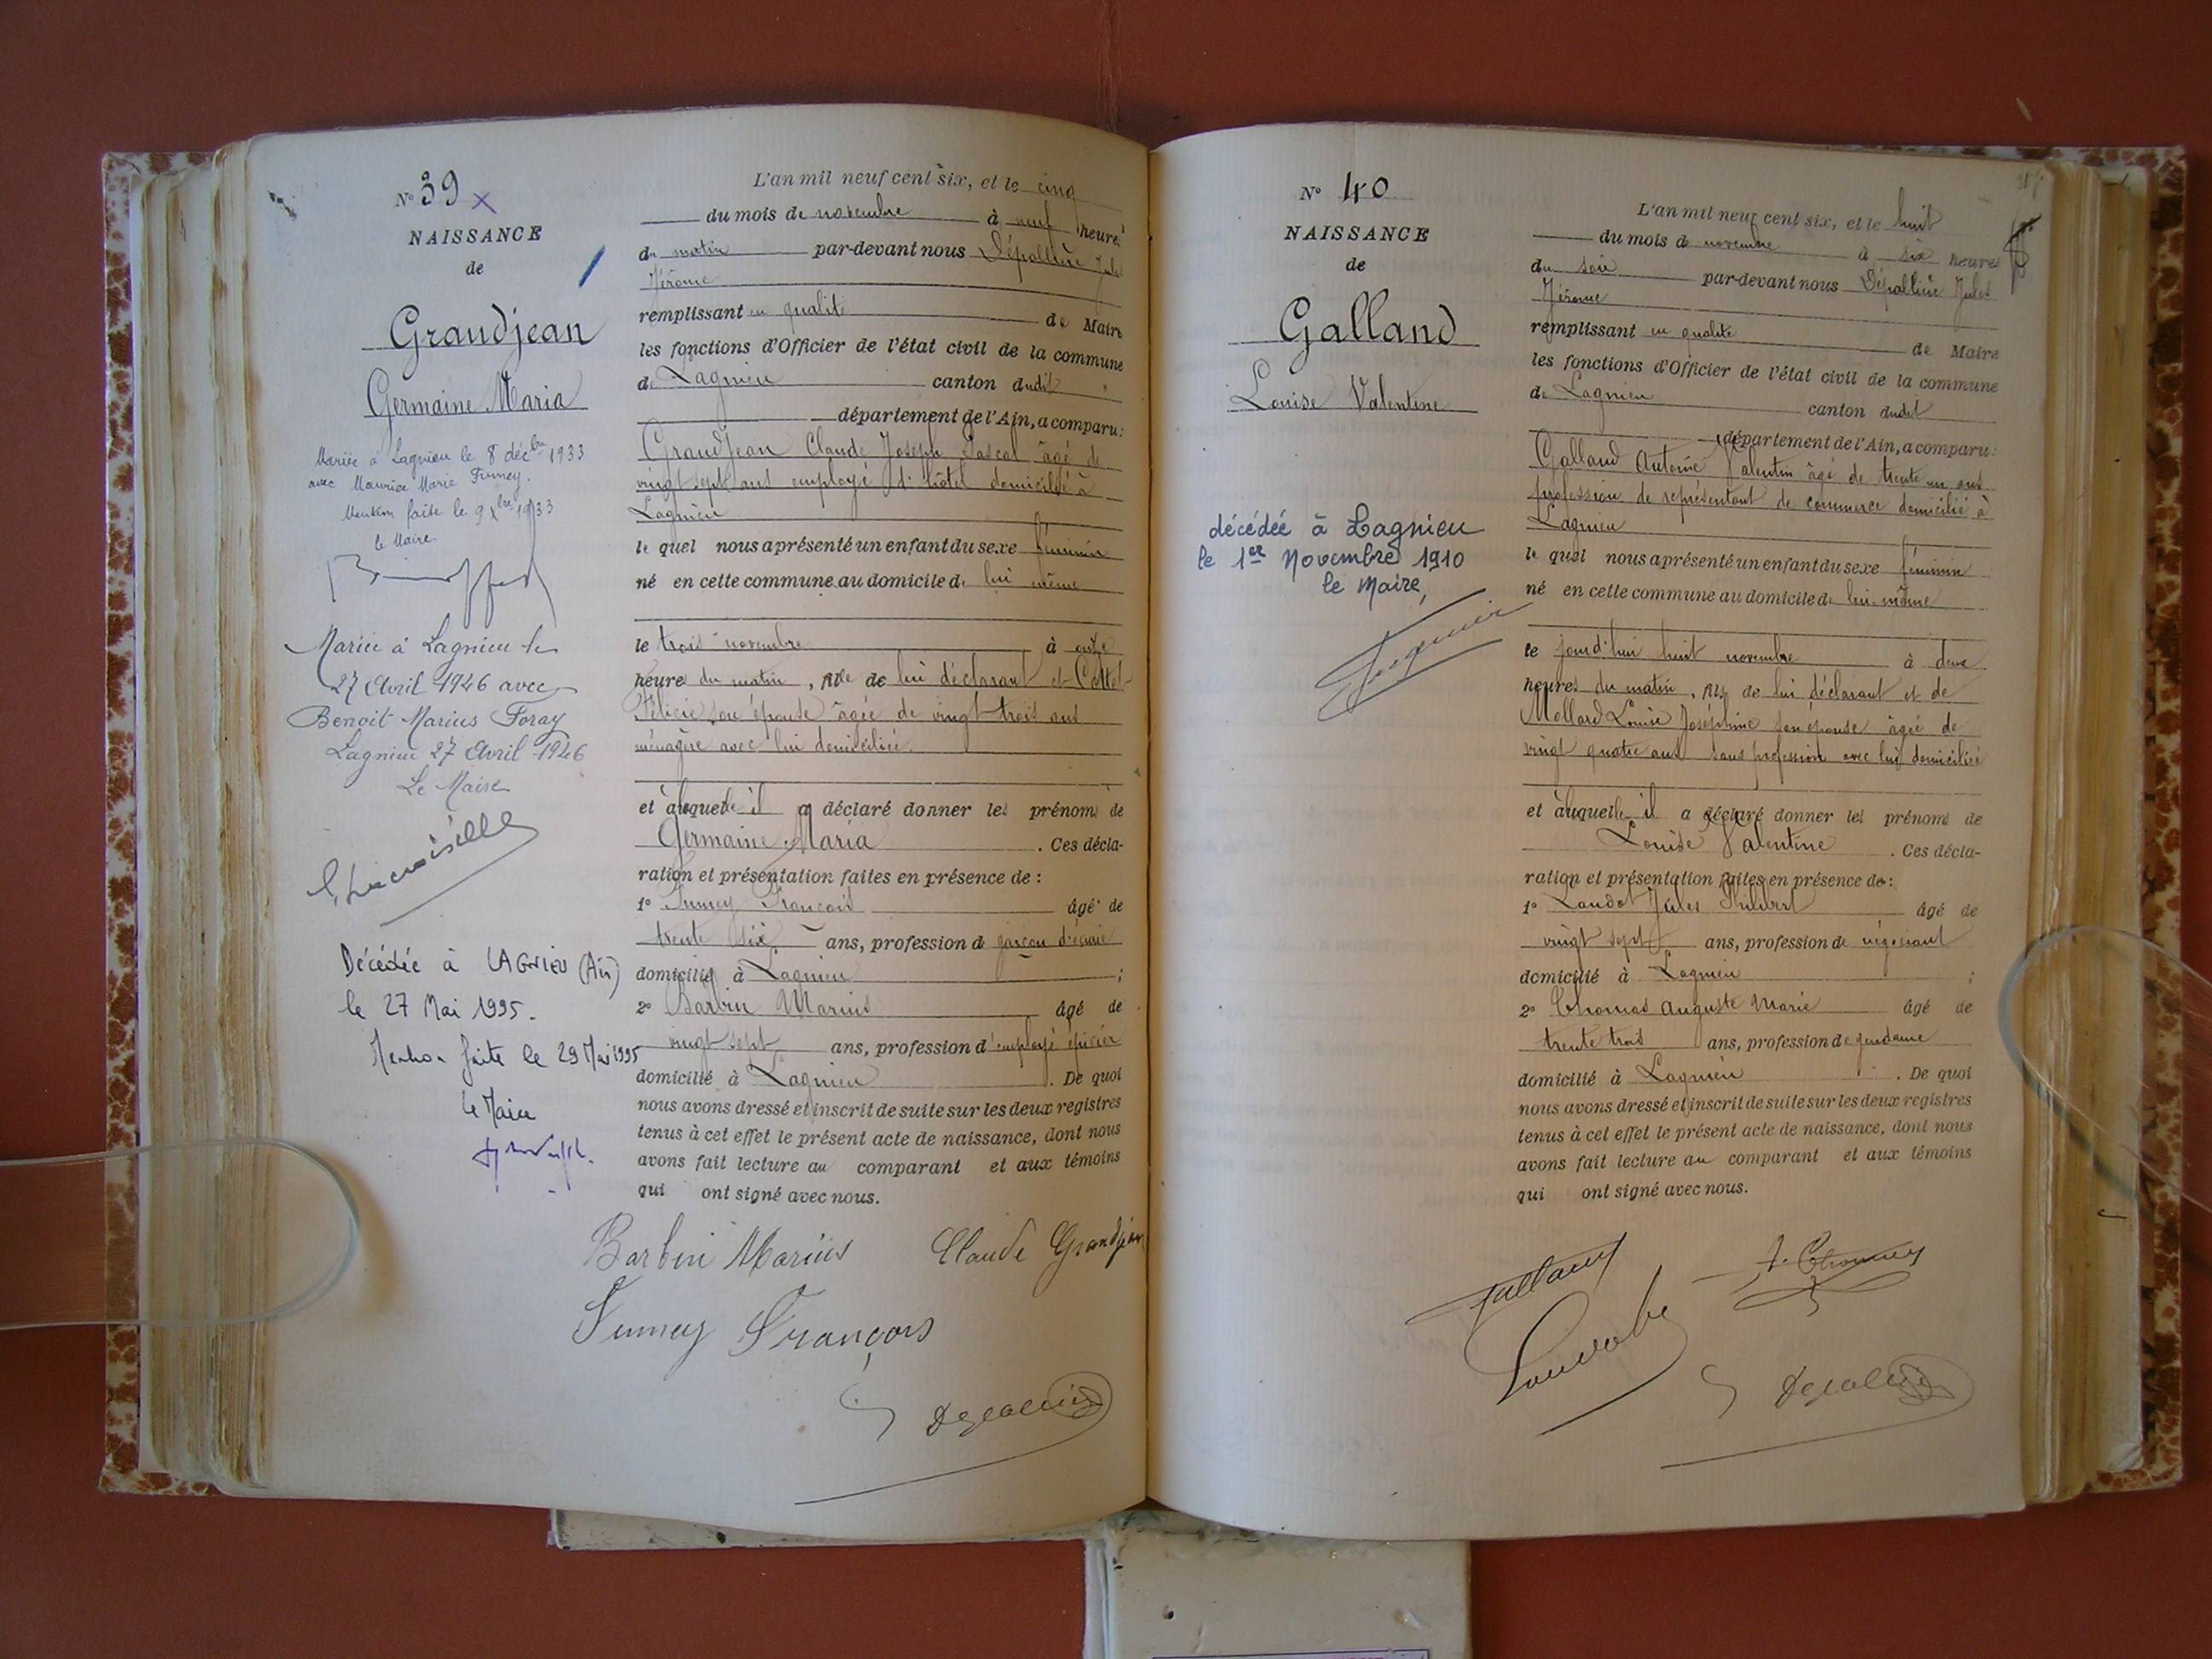 N° 39 x
NAISSANCE
de
Grandjean
Germaine Maria
Mariée à Lagnieu le 8 décbre 1933
avec Maurice Marie Fumey.
Mention faite le 9 Xbre 1933
le Maire
Mariée à Lagnieu le
27 Avril 1946 avec
Benoit Marius Foray
Lagnieu 27 Avril 1946
Le Maire
Décédée à LAGNIEU (Ain)
le 27 Mai 1995.
Mention faite le 29 Mai 1995
le Maire
L'an mil neuf cent six, et le cinq
du mois de novembre à neuf heures
du matin par-devant nous Dépallière Jules
Jérome
remplissant en qualité de Maire
les fonctions d'Officier de l'état civil de la commune
de Lagnieu canton dudit
département de l'Ain, a comparu:
Grandjean Claude Joseph Pascal âgé de
vingt sept ans employé d'hôtel domicilié à
Lagnieu
le quel nous a présenté un enfant du sexe féminin
né en cette commune au domicile de lui même
le trois novembre à onze
heures du matin, fille de lui déclarant et Cottet
Félicie son épouse âgée de vingt trois ans
ménagère avec lui domiciliée.
et à laquelle il a déclaré donner les prénoms de
Germaine Maria. Ces décla-
ration et présentation faites en présence de :
1° Fumey François âgé de
trente six ans, profession de garçon d'écurie
domicilié à Lagnieu ;
2° Barbin Marius âgé de
vingt sept ans, profession d'employé épicier
domicilié à Lagnieu. De quoi
nous avons dressé et inscrit de suite sur les deux registres
tenus à cet effet le présent acte de naissance, dont nous
avons fait lecture au comparant et aux témoins
qui ont signé avec nous.
Barbin Marius Claude Grandjean
Fumey François
Depallière
N° 40
NAISSANCE
de
Galland
Louise Valentine
décédée à Lagnieu
le 1er Novembre 1910
le Maire,
L'an mil neuf cent six, et le huit
du mois de novembre à six heures
du soir par-devant nous Dépallière Jules
Jérome
remplissant en qualité de Maire
les fonctions d'Officier de l'état civil de la commune
de Lagnieu canton dudit
département de l'Ain, a comparu:
Galland Antoine Valentin âgé de trente un ans
profession de représentant de commerce domicilié à
Lagnieu
le quel nous a présenté un enfant du sexe féminin
né en cette commune au domicile de lui-même
le jourd'hui huit novembre à deux
heures du matin, fille de lui déclarant et de
Mollard Louise Joséphine son épouse âgée de
vingt quatre ans sans profession avec lui domiciliée
et à laquelle il a déclaré donner les prénoms de
Louise Valentine. Ces décla-
ration et présentation faites en présence de :
1° Laudot Jules Philibert âgé de
vingt sept ans, profession de négociant
domicilié à Lagnieu ;
2° Thomas Auguste Marie âgé de
trente trois ans, profession de gendarme
domicilié à Lagnieu. De quoi
nous avons dressé et inscrit de suite sur les deux registres
tenus à cet effet le présent acte de naissance, dont nous
avons fait lecture au comparant et aux témoins
qui ont signé avec nous.
Galland A. Thomas
Depallière